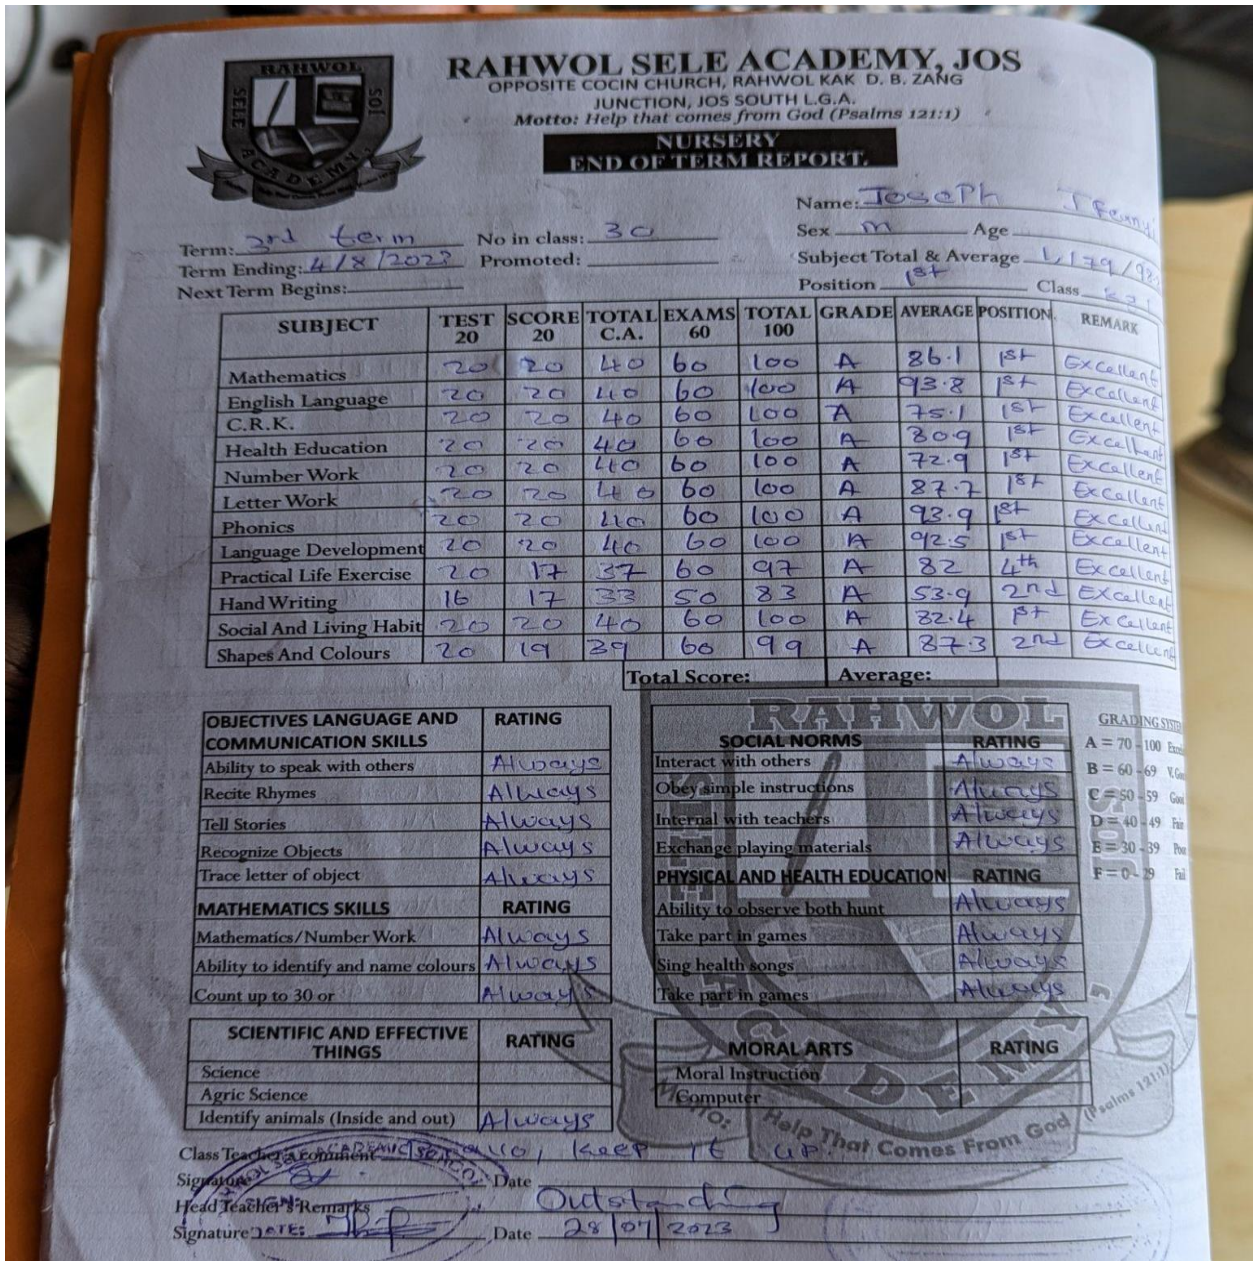 RAHWOL
SELE
JOS
ACADEMY,
RAHWOL SELE ACADEMY, JOS
OPPOSITE COCIN CHURCH, RAHWOL KAK D. B. ZANG
JUNCTION, JOS SOUTH L.G.A.
Motto: Help that comes from God (Psalms 121:1)
NURSERY
END OF TERM REPORT.
Name: Joseph
Term: 3rd term No in class: 30 Sex m Age
Term Ending: 4/8/2023 Promoted: Subject Total & Average 1,179/98.
Next Term Begins: Position 1st Class
SUBJECT TEST 20 SCORE 20 TOTAL C.A. EXAMS 60 TOTAL 100 GRADE AVERAGE POSITION. REMARK
Mathematics 20 20 40 60 100 A 86.1 1st Excellent
English Language 20 20 40 60 100 A 93.8 1st Excellent
C.R.K. 20 20 40 60 100 A 75.1 1st Excellent
Health Education 20 20 40 60 100 A 80.9 1st Excellent
Number Work 20 20 40 60 100 A 72.9 1st Excellent
Letter Work 20 20 40 60 100 A 87.7 1st Excellent
Phonics 20 20 40 60 100 A 93.9 1st Excellent
Language Development 20 20 40 60 100 A 92.5 1st Excellent
Practical Life Exercise 20 17 37 60 97 A 82 4th Excellent
Hand Writing 16 17 33 50 83 A 53.9 2nd Excellent
Social And Living Habit 20 20 40 60 100 A 82.4 1st Excellent
Shapes And Colours 20 19 39 60 99 A 87.3 2nd Excellent
Total Score: Average:
OBJECTIVES LANGUAGE AND COMMUNICATION SKILLS RATING
Ability to speak with others Always
Recite Rhymes Always
Tell Stories Always
Recognize Objects Always
Trace letter of object Always
MATHEMATICS SKILLS RATING
Mathematics/Number Work Always
Ability to identify and name colours Always
Count up to 30 or Always
SCIENTIFIC AND EFFECTIVE THINGS RATING
Science
Agric Science
Identify animals (Inside and out) Always
RAHWOL
SOCIAL NORMS RATING
Interact with others Always
Obey simple instructions Always
Internal with teachers Always
Exchange playing materials Always
PHYSICAL AND HEALTH EDUCATION RATING
Ability to observe both hunt Always
Take part in games Always
Sing health songs Always
Take part in games Always
MORAL ARTS RATING
Moral Instruction
Computer
GRADING SYSTEM
A = 70 - 100
B = 60 - 69
C = 50 - 59 Good
D = 40 - 49 Fair
E = 30 - 39 Poor
F = 0 - 29 Fail
SELE
JOS
ACADEMY,
Motto: Help That Comes From God (Psalms 121:1)
Class Teacher's comment keep it up.
Signature Date
Head Teacher's Remarks Outstanding
Signature Date 28/07/2023
SIGN:
DATE: